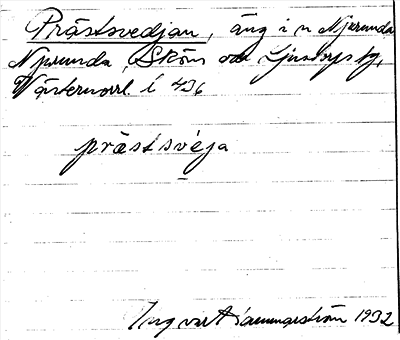 Prästsvedjan, äng i n Njurunda
Njurunda, Sköns och Ljustorps tg,
Västernorrl. l 436
prästsvéja
Ingvar Hammarström 1932